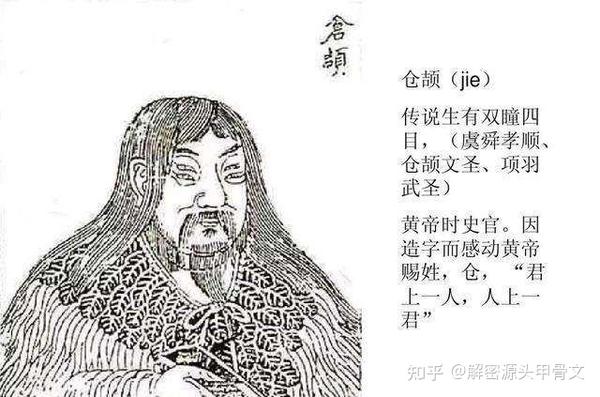 倉頡
仓颉（jie）
传说生有双瞳四
目，（虞舜孝顺、
仓颉文圣、项羽
武圣）
黄帝时史官。因
造字而感动黄帝
赐姓，仓，“君
上一人，人上一
君”
知乎 @解密源头甲骨文